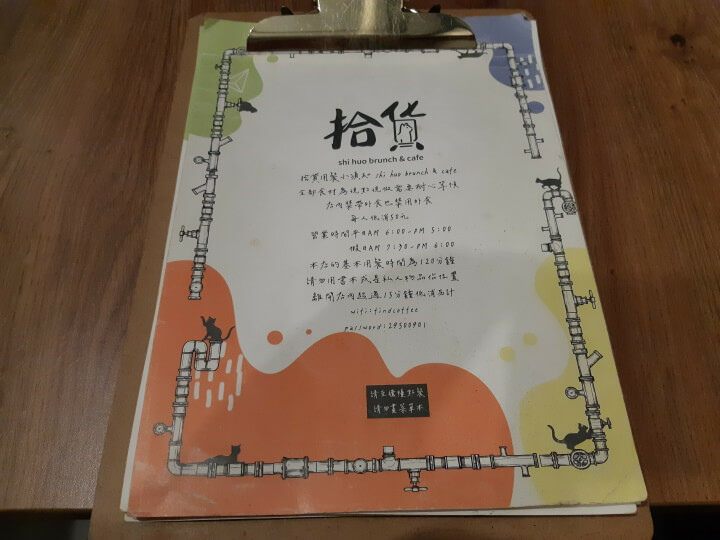 拾貨
shi huo brunch & cafe
拾貨用餐小須知 shi huo brunch & cafe
全部食材為現點現做需要耐心等候
店內禁帶外食也禁用外食
每人低消50元
營業時間平日AM 6:00-PM 5:00
假日AM 7:30-PM 6:00
本店的基本用餐時間為120分鐘
請勿用書本或是私人物品佔位置
離開店內超過15分鐘低消另計
wifi:findcoffee
password:29380901
請至櫃檯點餐
請勿畫菜單本